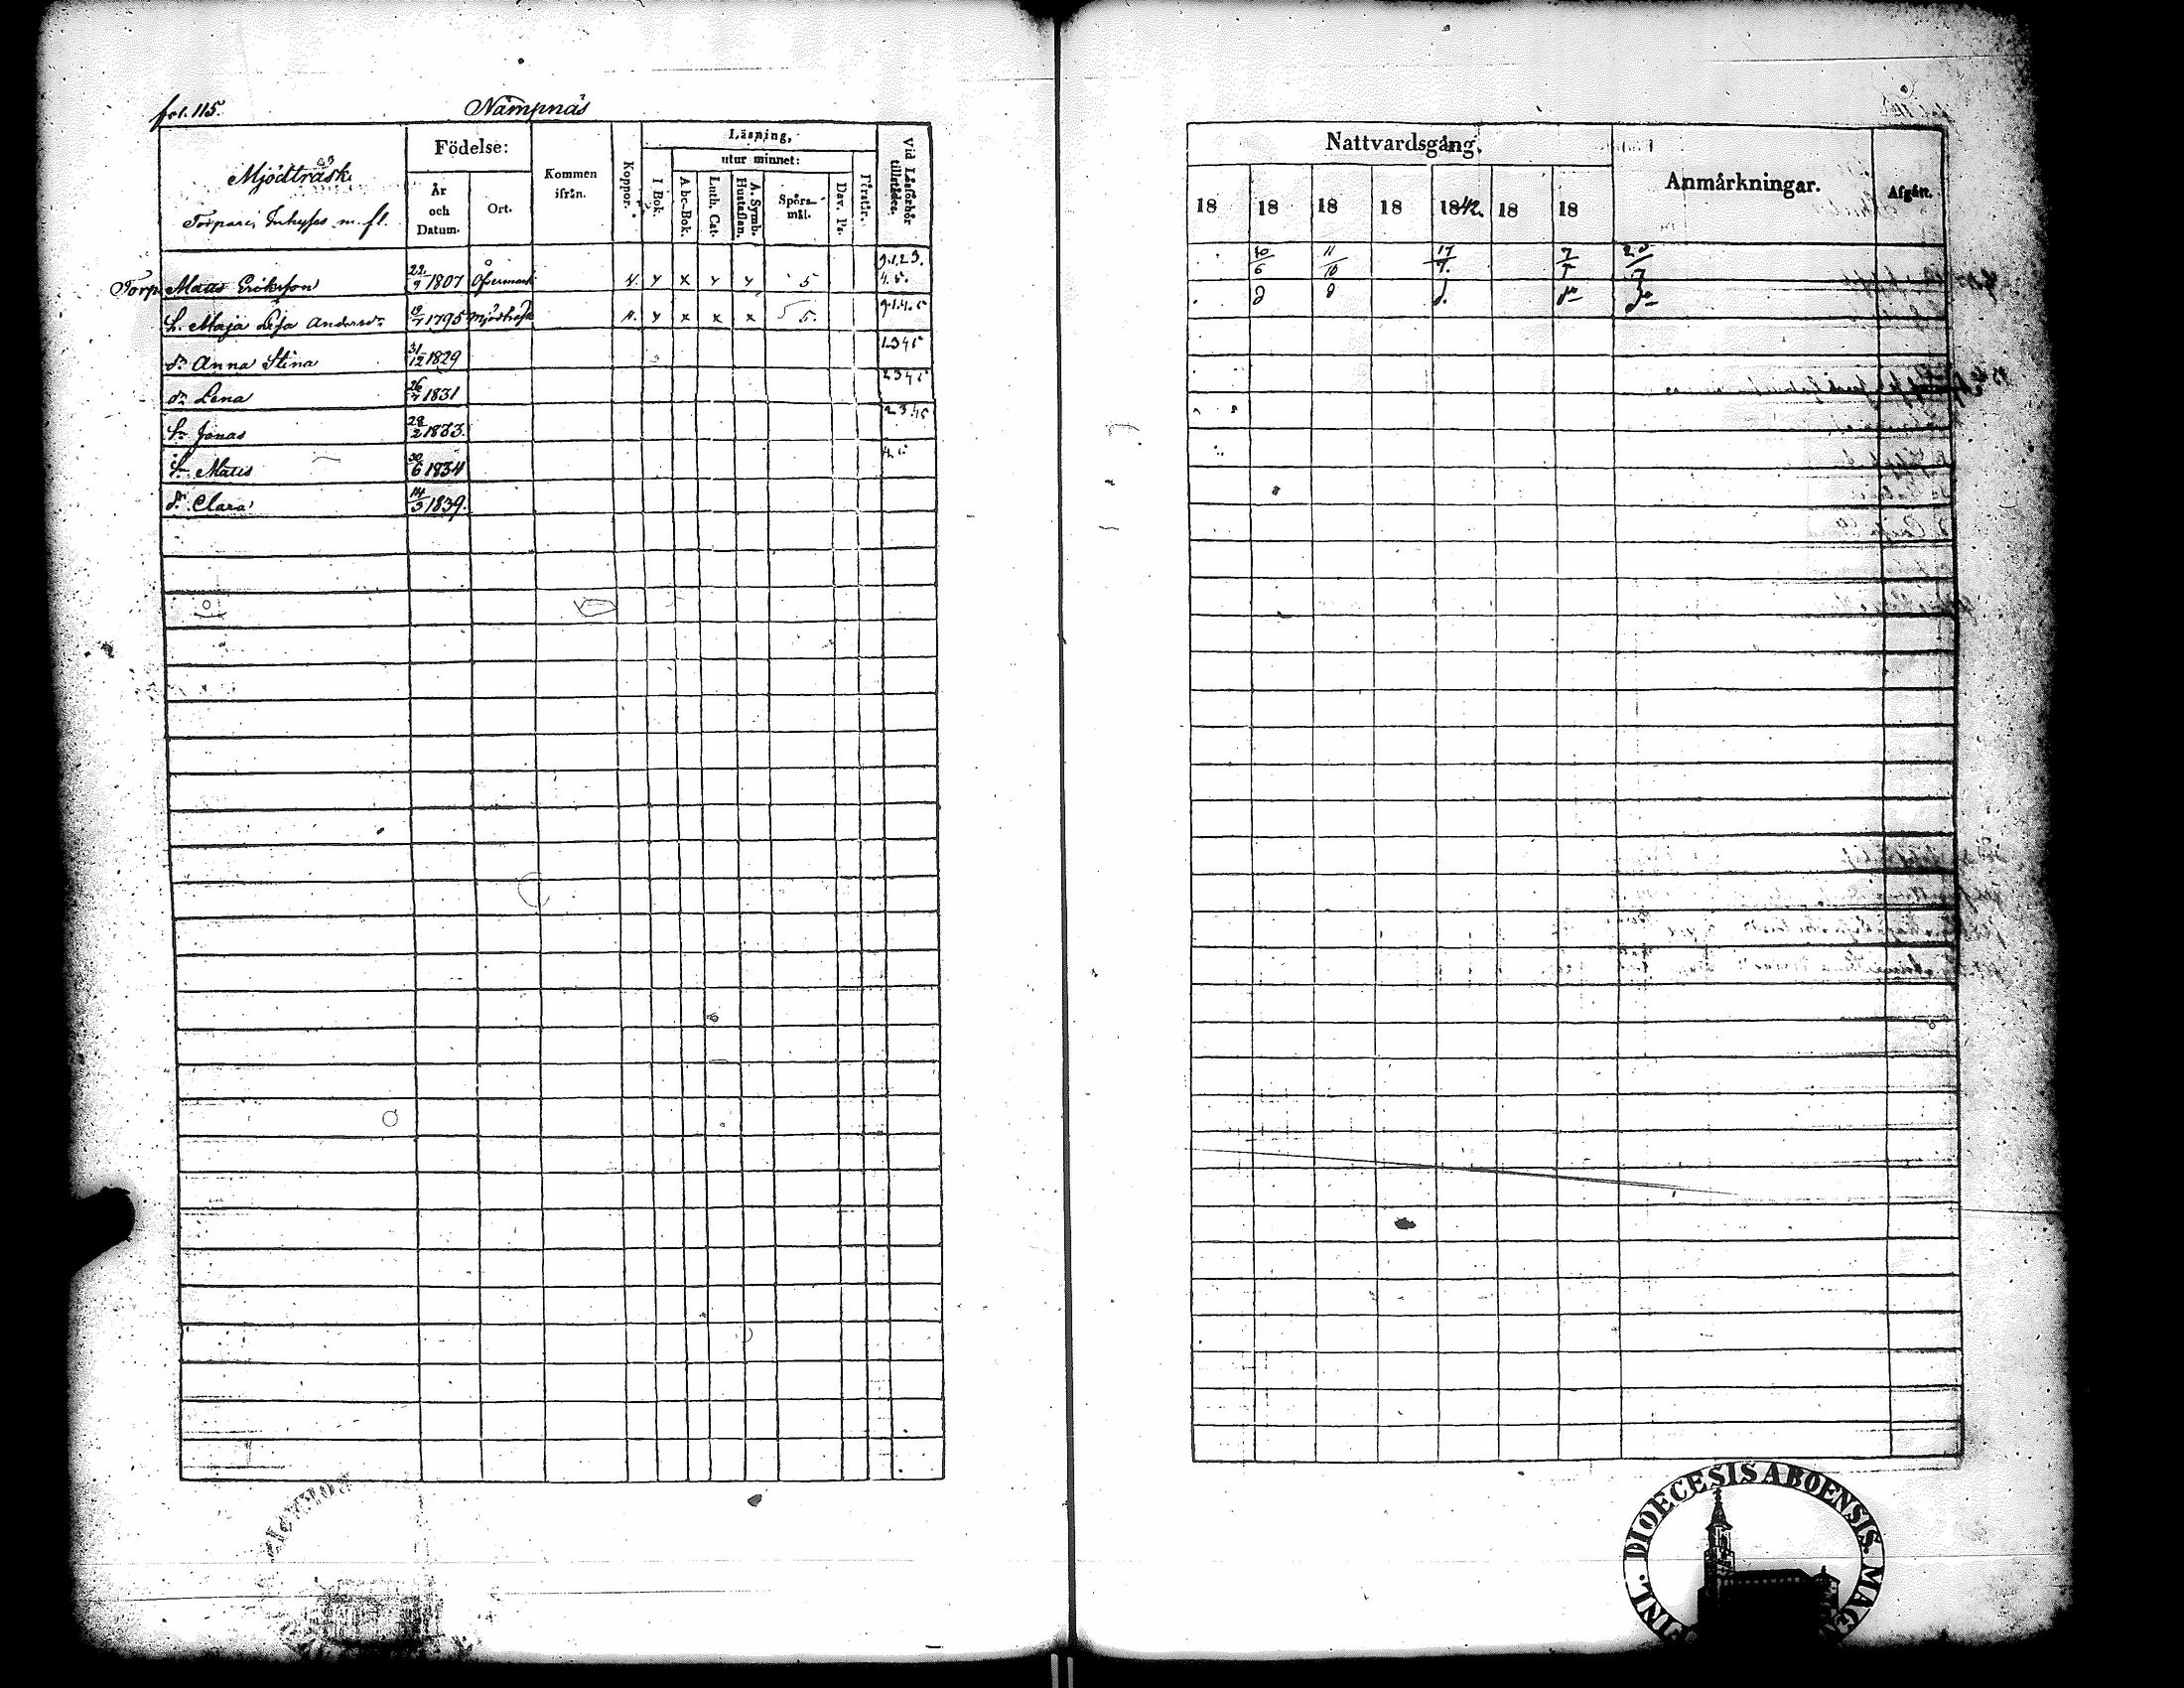 fol. 115.
Nämpnäs
Mjödträsk
Torpare, Inhyses m. fl.
Födelse:
År och Datum.
Ort.
Kommen ifrån.
Koppor.
Läsning,
I Bok.
utur minnet:
A b c-Bok.
Luth. Cat.
A. Symb. Hustaflan.
Spörs-mål.
Dav. Ps.
Förstår.
Vid Läsförhör tillstädes.
Torp. Matts Eriksson 22/9 1807 Öfvermark x x x x 5 9.1.2.3. 4.5.
H. Maja Lisa Andersdr 19/7 1795 Mjödträsk x x x x 5. 9.1.4.5
dr Anna Stina 31/12 1829 1345
dr Lena 26/7 1831 2345
Sn Jonas 28/2 1833. 2345
Sn Matts 30/6 1834 4.5
dr Clara 14/3 1839.
Nattvardsgång.
18 18 18 18 1842. 18 18
Anmärkningar.
Afgått.
30/6 11/10 17/7. 7/7 20/7
d d d. do do
FINL. DIOECESIS ABOENSIS. MAG